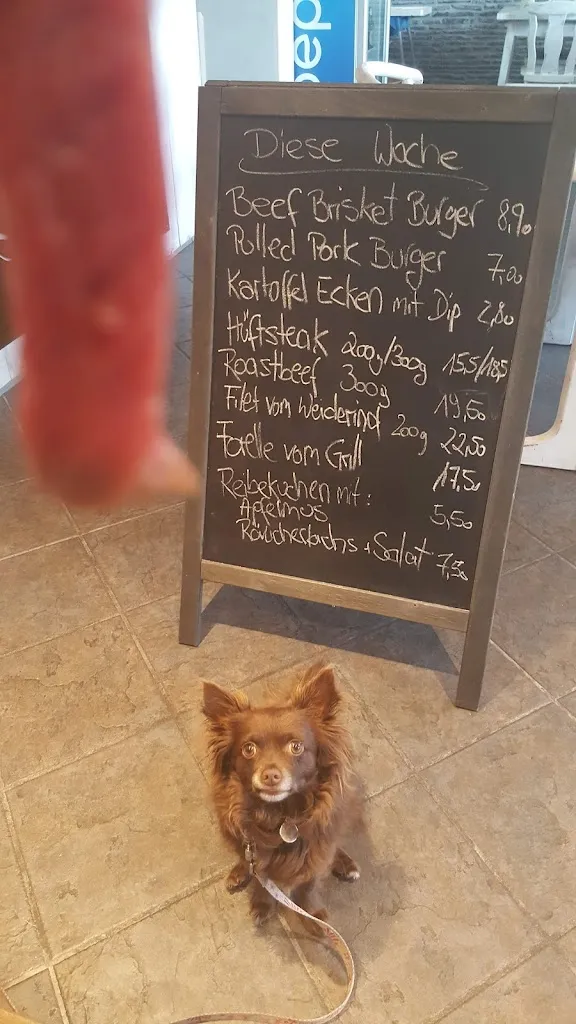 Diese Woche
Beef Brisket Burger 8,90
Pulled Pork Burger 7,00
Kartoffel Ecken mit Dip 2,80
Hüftsteak 200g/300g 15,5/18,5
Roastbeef 300g 19,50
Filet vom Weiderind 200g 22,50
Forelle vom Grill 17,50
Reibekuchen mit:
Apfelmus 5,50
Räucherlachs + Salat 7,50